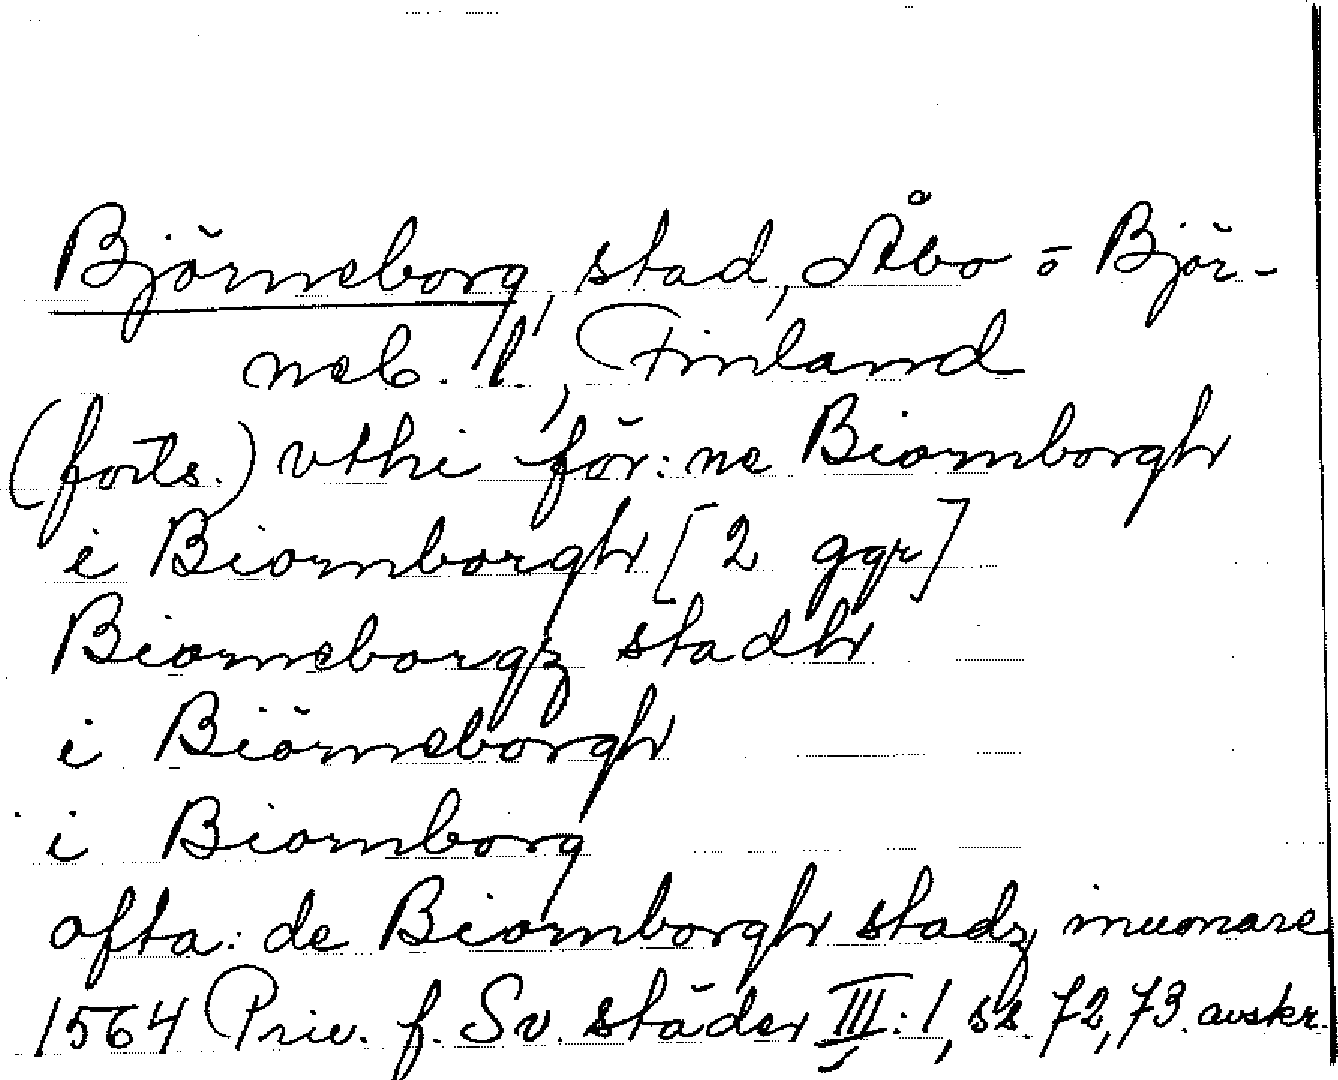 Björneborg, stad, Åbo o Björ-
neb. l, Finland
(forts.) vthi för:ne Biornborgh
i Biornborgh [2 ggr]
Biorneborgz stadh
i Biörneborgh
i Biornborg
ofta: de Biornborgh stadz inuonare
1564 Priv. f. Sv. städer III:1, ss. 72, 73. avskr.